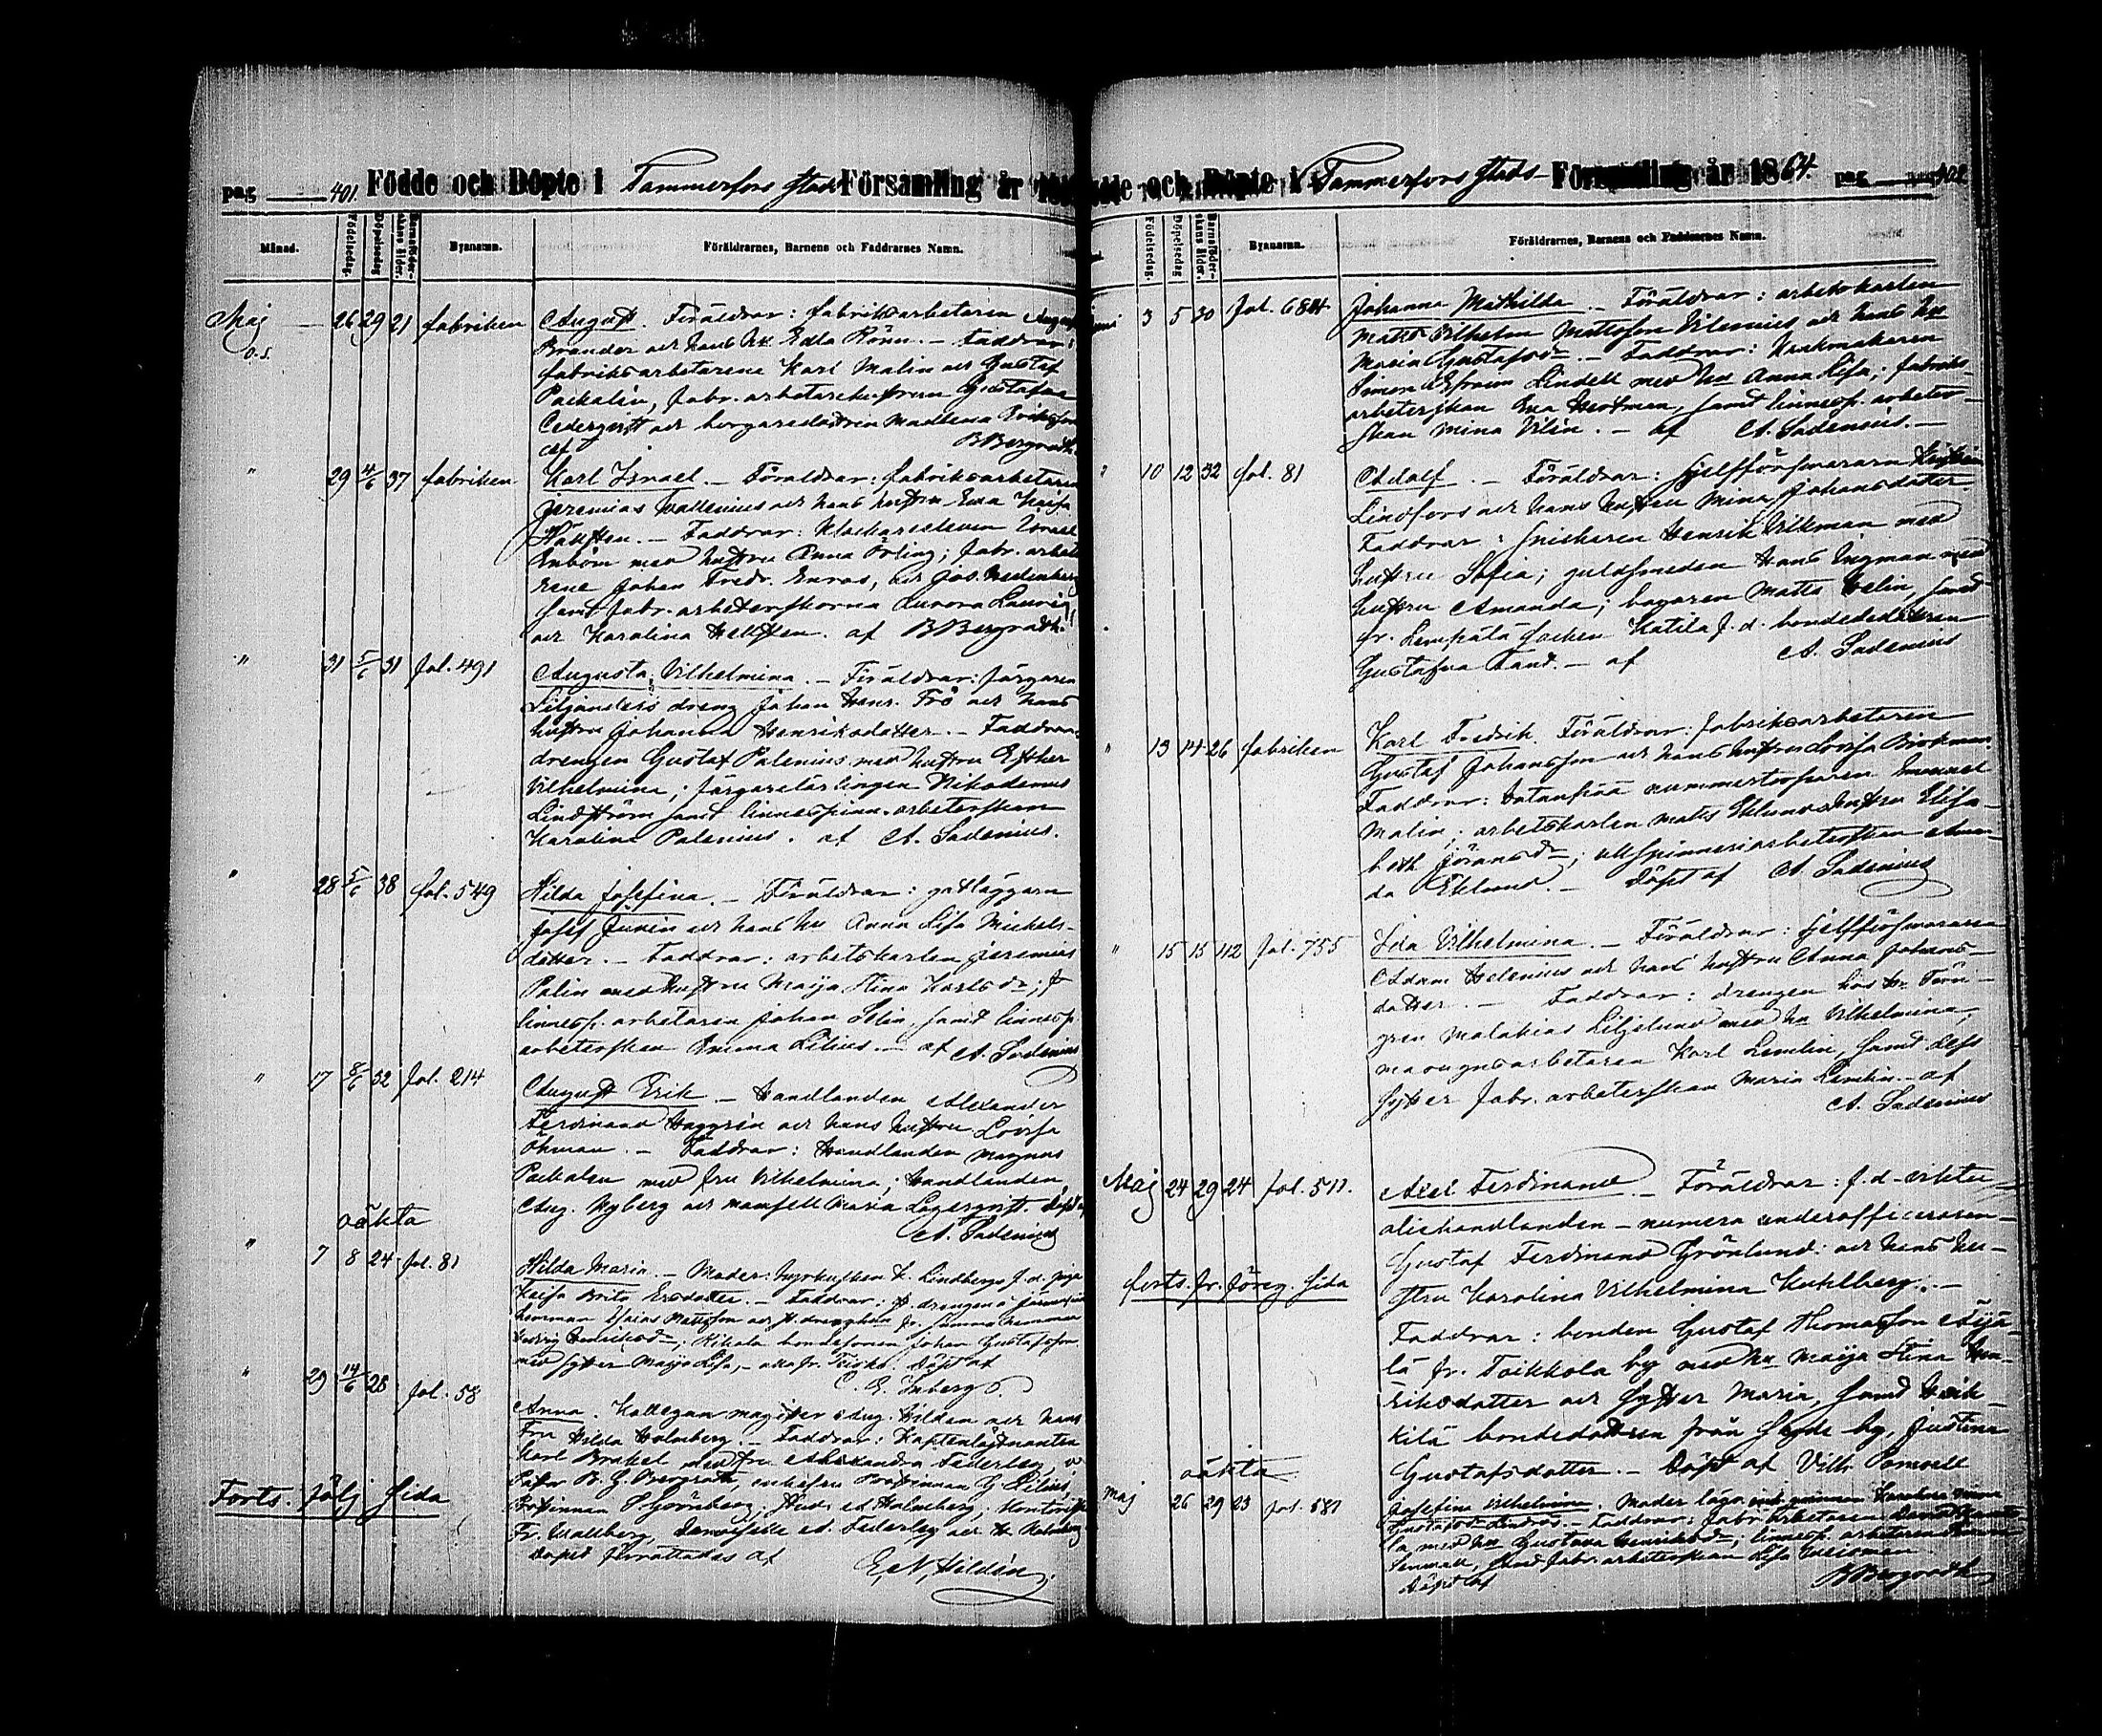 pag 401. Födde och Döpte i Tammerfors Stads Församling år
Månad. Födelsedag. Döpelsedag Barnaföderskans ålder. Bynamn. Föräldrarnes, Barnens och Faddrarnes Namn.
Maj 26 29 21 fabriken August. Föräldrar: fabriksarbetaren August
o.s. Brander och hans hu Edla Rönn. — Faddrar:
fabriksarbetarene Karl Malin och Gustaf
fabr. arbetarehustrun Gustafva
Cederqvist och borgaredottren Madlena
af B Bergroth.
" 29 4/6 37 fabriken Karl Israel. — Föräldrar: fabriksarbetaren
Jeremias Wallenius och hans hustru Eva Kaisa
— Faddrar: Klockareeleven Israel
Inbom med hustru Anna Örling; fabr. arbeta-
rene Johan Fredr. Enros, och Jos.
samt fabr. arbeterskorna Aurora
och Karolina Hellsten. af B Bergroth.
" 31 5/6 31 fol. 491 Augusta Vilhelmina. — Föräldrar: färgaren
Liljanders dreng Johan Henr. Frö och hans
hustru Johanna Henriksdotter. — Faddrar:
drengen Gustaf Palenius med hustru Esther
Vilhelmina; färgarelärlingen Nikodemus
Lindström samt linnespinn. arbeterskan
Karolina Palenius. af A. Sadenius.
" 28 5/6 38 fol. 549 Hilda Josefina. — Föräldrar: gatläggarn
Josef Junin och hans hu Anna Lisa Michels-
dotter. — Faddrar: arbetskarlen Jeremias
Palin med hustru Maija Stina Karlsdr;
linnesp. arbetaren Johan Selin, samt linnesp.
arbeterskan Emma Lilius. — af A. Sadenius
" 17 8/6 32 fol. 214 August Erik — Handlanden Alexander
Ferdinand Häggrén och hans hustru Lovisa
Öhman. — Faddrar: Handlanden Magnus
med fru Vilhelmina; Handlanden
Aug. Nyberg och mamsell Maria Lagerqvist. Döpt af
A. Sadenius
oäkta
" 7 8 24 fol. 81 Hilda Maria. — Moder: hyrkusken K. Lindbergs f.d. piga
Kaisa Brita Ersdotter. — Faddrar: drengen
Mattsson och
Johan Gustafsson
med syster Maija Lisa, — alla fr. Döpt af
C. E. Inberg.
" 29 14/6 28 fol. 58 Anna. Kollegan magister Aug. Hildén och hans
Fru Hilda Holmberg. — Faddrar: Kaptenlöjtnanten
Karl Brakel med fru Alexandra Federley,
B. Z. Bergroth, enkefru Prostinnan G Lilius,
Prostinnan Grönberg; Stud: ed. Holmberg;
Fr. Wallberg, Demoiselle ed. Federley och H. Holmberg
Döpet förrättades af E. N. Hildén.
Forts. följ sida
och Döpte i Tammerfors Stads Församling år 1864. pag 402
Födelsedag. Döpelsedag Barnaföderskans ålder. Bynamn. Föräldrarnes, Barnens och Faddrarnes Namn.
Juni 3 5 30 fol. 684 Johanna Mathilda. — Föräldrar: arbetskarlen
Matts Vilhelm Mattsson Vilenius och hans hu
Maria Gustafsdr. — Faddrar:
Simon Efraim Lindell med hu Anna Lisa; fabriks-
arbeterskan Eva samt linnesp. arbeter-
skan Mina Vilén. — af A. Sadenius. —
" 10 12 32 fol. 81 Adolf. — Föräldrar: sjelfförsvararn
Lindfors och hans hustru Mina Johansdotter.
Faddrar: snickaren Henrik Vilkman med
hustru Sofia; guldsmeden Hans Engman med
hustru Amanda; bagaren Matts Velin, samt
fr. Lempälä socken Katila f.d. bondedottren
Gustafva Tand. — af A. Sadenius
" 13 14 26 fabriken Karl Fredrik. Föräldrar: fabriksarbetaren
Gustaf Johansson och hans hustru Lovisa Birkman.
Faddrar: Hatanpää rummertorparen Emanuel
Malin; arbetskarlen Matts Eklunds hustru Elisa-
beth Göransdr; ullspinneriarbeterskan Aman-
da Eklund. — Döpt af A. Sadenius
" 15 15 42 fol. 755 Ida Vilhelmina. — Föräldrar: sjelfförsvararen
Adam Helenius och hans hustru Anna Johans-
dotter. — Faddrar: drengen hos Hr Törn-
gren Malakias Liljelund med hu Vilhelmina;
masugnsarbetaren Karl Lemlin, samt dess
syster fabr. arbeterskan Maria Lemlin. — af
A. Sadenius
Maj 24 29 24 fol. 511. Axel Ferdinand. — Föräldrar: f.d. viktu-
aliehandlanden — numera underofficeraren —
Gustaf Ferdinand Grönlund och hans hu-
stru Karolina Vilhelmina Kuhlberg. —
forts. fr. föreg. sida
Faddrar: bonden Gustaf Thomasson Äijä-
lä fr. Toikkola by med hu Maija Stina Hen-
riksdotter och syster Maria, samt Heik-
kilä bondedottren från by, Justina
Gustafsdotter. — Döpt af Vilh. Samsell
oäkta
Maj 26 29 23 fol. 581 Josefina Vilhelmina. Moder lösa qvinnan Karolina
Gustafsdr — Faddrar: fabr. arbetaren
med hu Gustava Henriksdr; linnesp. arbetaren
samt fabr. arbeterskan Lisa
Döpt af B Bergroth